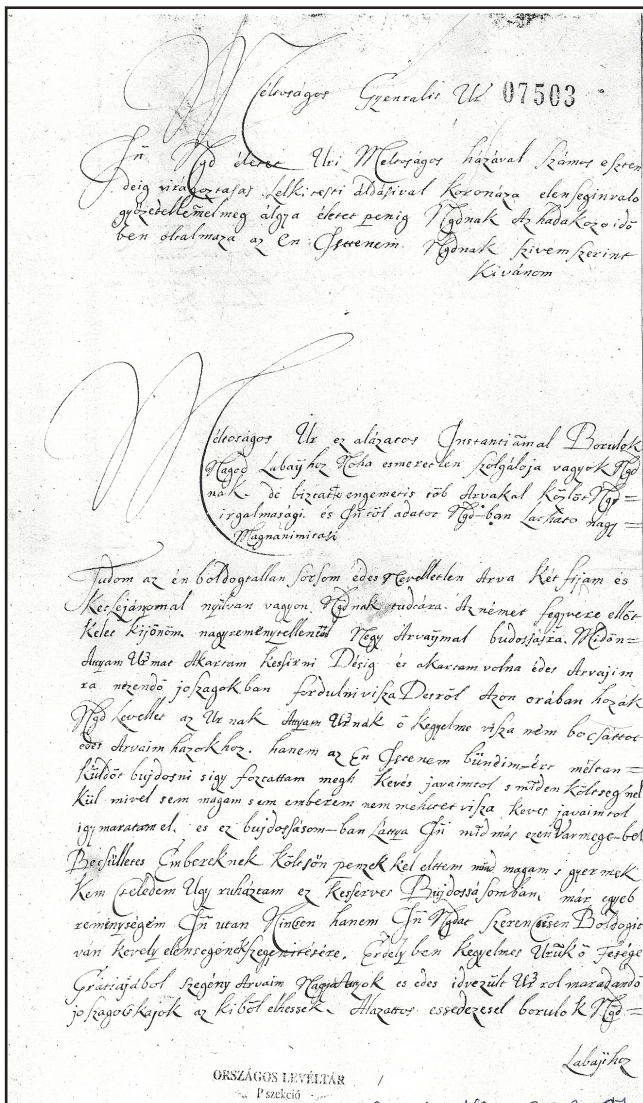 Méltoságos Gyenralis Ur 07503
Jñ Ngd életet Uri Meltoságos házával számos eszten
deig virágoztassa, Lelki testi áldásival koronázza elenseginvalo
győzedelemmel meg álgya életet penig Ngdnak Az hadakozo idő
ben oltalmaza az En Jstenem Ngdnak szivem szerint
Kivánom
Méltoságos Ur ez alázatos Jnstantiámal Borulok
Nagod Labaÿhoz Noha esmeretlen szolgáloja vagyok Ngd
nak. de biztatt engemetis töb Arvakal közlöt Ngd
irgalmasági és Jñ töl adatot Ngd-ban Lathato nagy
Magnanimitasi
Tudom az én boldogtallan sorsom édes Nevelletlen Arva Két fijam és
Két leÿánomal nyilván vagyon, Ngdnak tudtára. Az német fegyvere ellöt
kelet kijönöm nagyreménytellenül Negy Arvaÿmal budosására. Midön
Attyam Uramat Akartam kesirni Désig és akartam volna édes Arvajim
ra nezendő joszagokban fordulni visza Desröl Azon orában hozák
Ngd Levelles az Urnak Attyam Urnak ő kegyelme visza nem bocsáttot
édes Arvaim házokhoz. hanem az En Jstenem bündim-ért méltan
küldöt bujdosni s igy foztattam megh kevés javaimtol s minden költseg nél
kül mivel sem magam sem emberem nem mehetet visza keves javaimtol
igy maratam el. és ez bujdossásom-ban Láttya Jñ mid más ezen vármegebel
Becsülletes Embereknek költsön penzekkel eltem mind magam s gyermek
Kem Cseledem Ugy ruháztam ez Keserves Bujdossásomban, már egyeb
reménységem Jñ utan Nincsen hanem Jñ Ngdat szerencsésen Boldogit
ván kevely elensegének szegenitésére, Erdelyben kegyelmes Urunk ő Felsége
Grátiájából szegény Arvaim Nagyattyok es édes idvezült Urokrol maradandó
joszagocskajok az kiböl elhessek. Alázatos essedezesel borulok Ngd
Labaihoz
ORSZÁGOS LEVÉLTÁR
P szekció